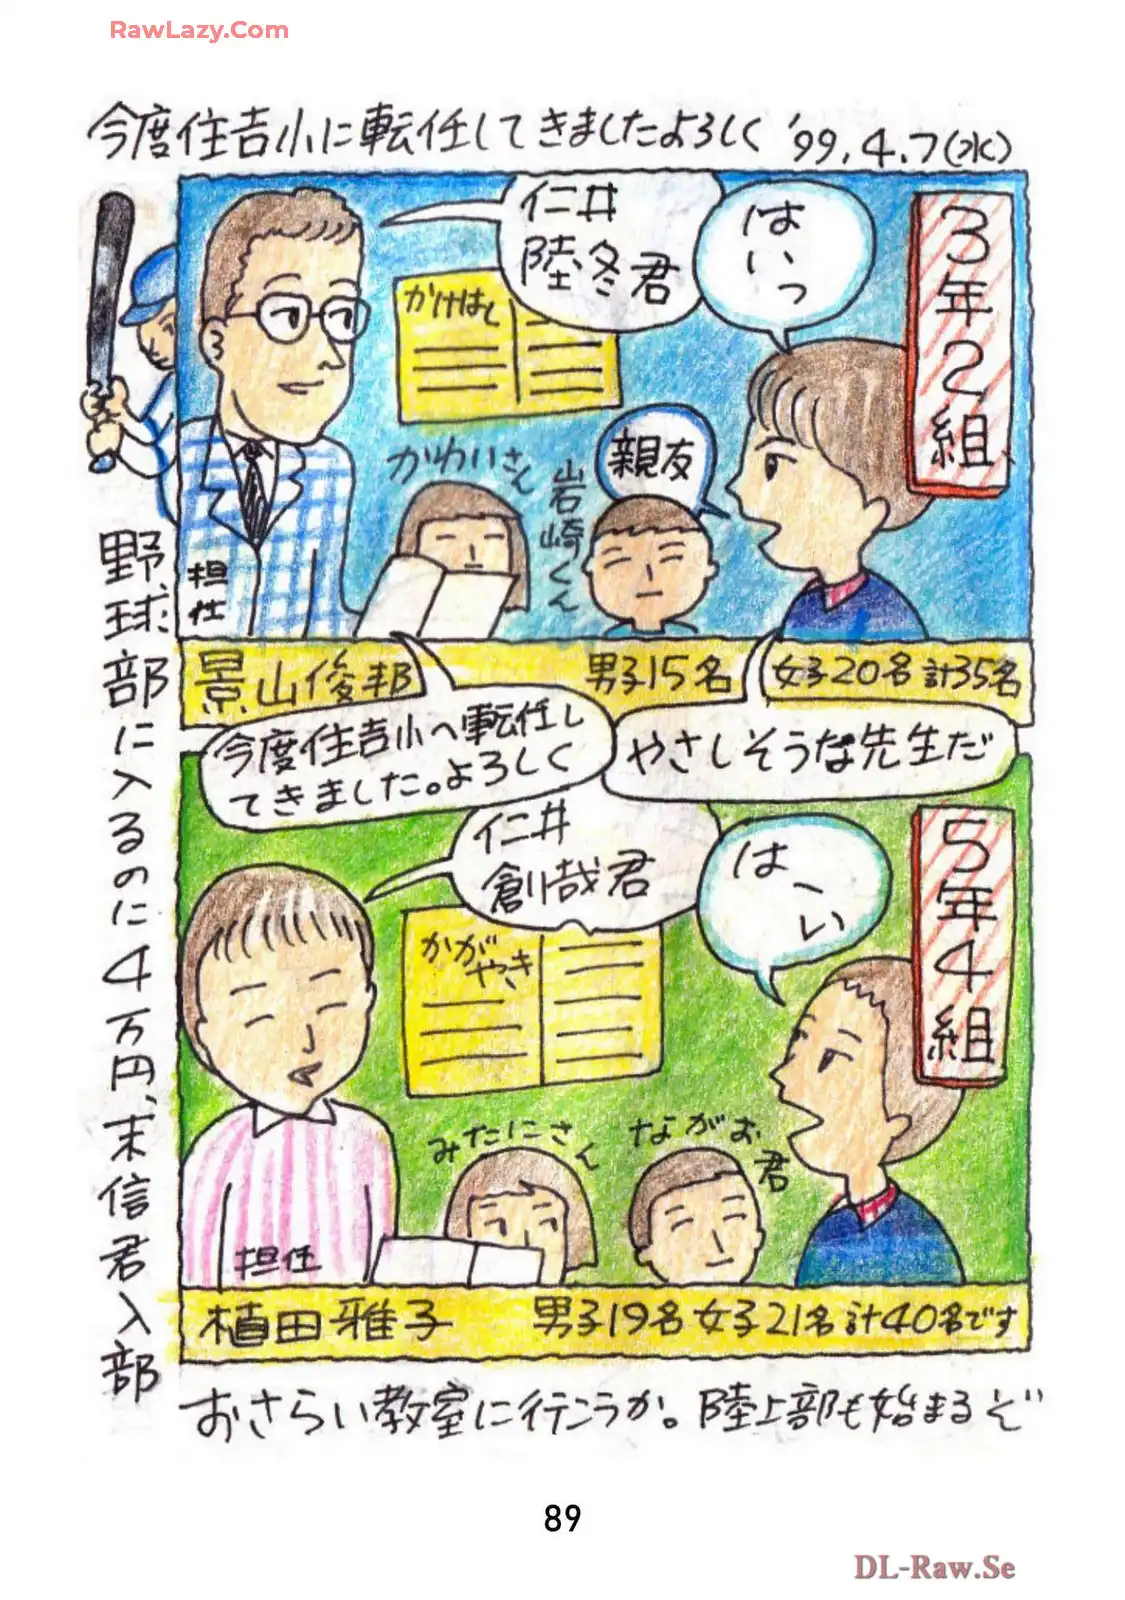 RawLazy.Com
今度住吉小に転任してきましたよろしく '99.4.7(水)
3年2組
はいっ
仁井
陸冬君
かけはし
親友
岩崎くん
かわいさん
担任
景山俊邦
男子15名
女子20名計35名
今度住吉小へ転任し
てきました。よろしく
やさしそうな先生だ
野球部に入るのに4万円、末信君入部
5年4組
はーい
仁井
創哉君
かがやき
みたにさん
ながお君
担任
植田雅子
男子19名女子21名計40名です
おさらい教室に行こうか。陸上部も始まるぞ
89
DL-Raw.Se